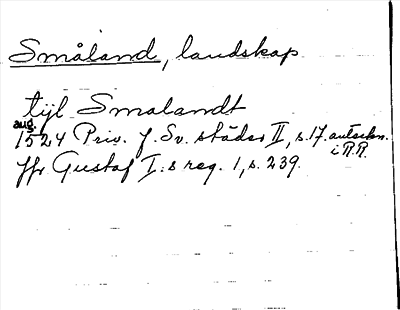 Småland, landskap
tijl Smalandt
aug.
1524 Priv. f. Sv. städer II, s. 17. avteckn.
i R.R.
Jfr Gustaf I:s reg. 1, s. 239.